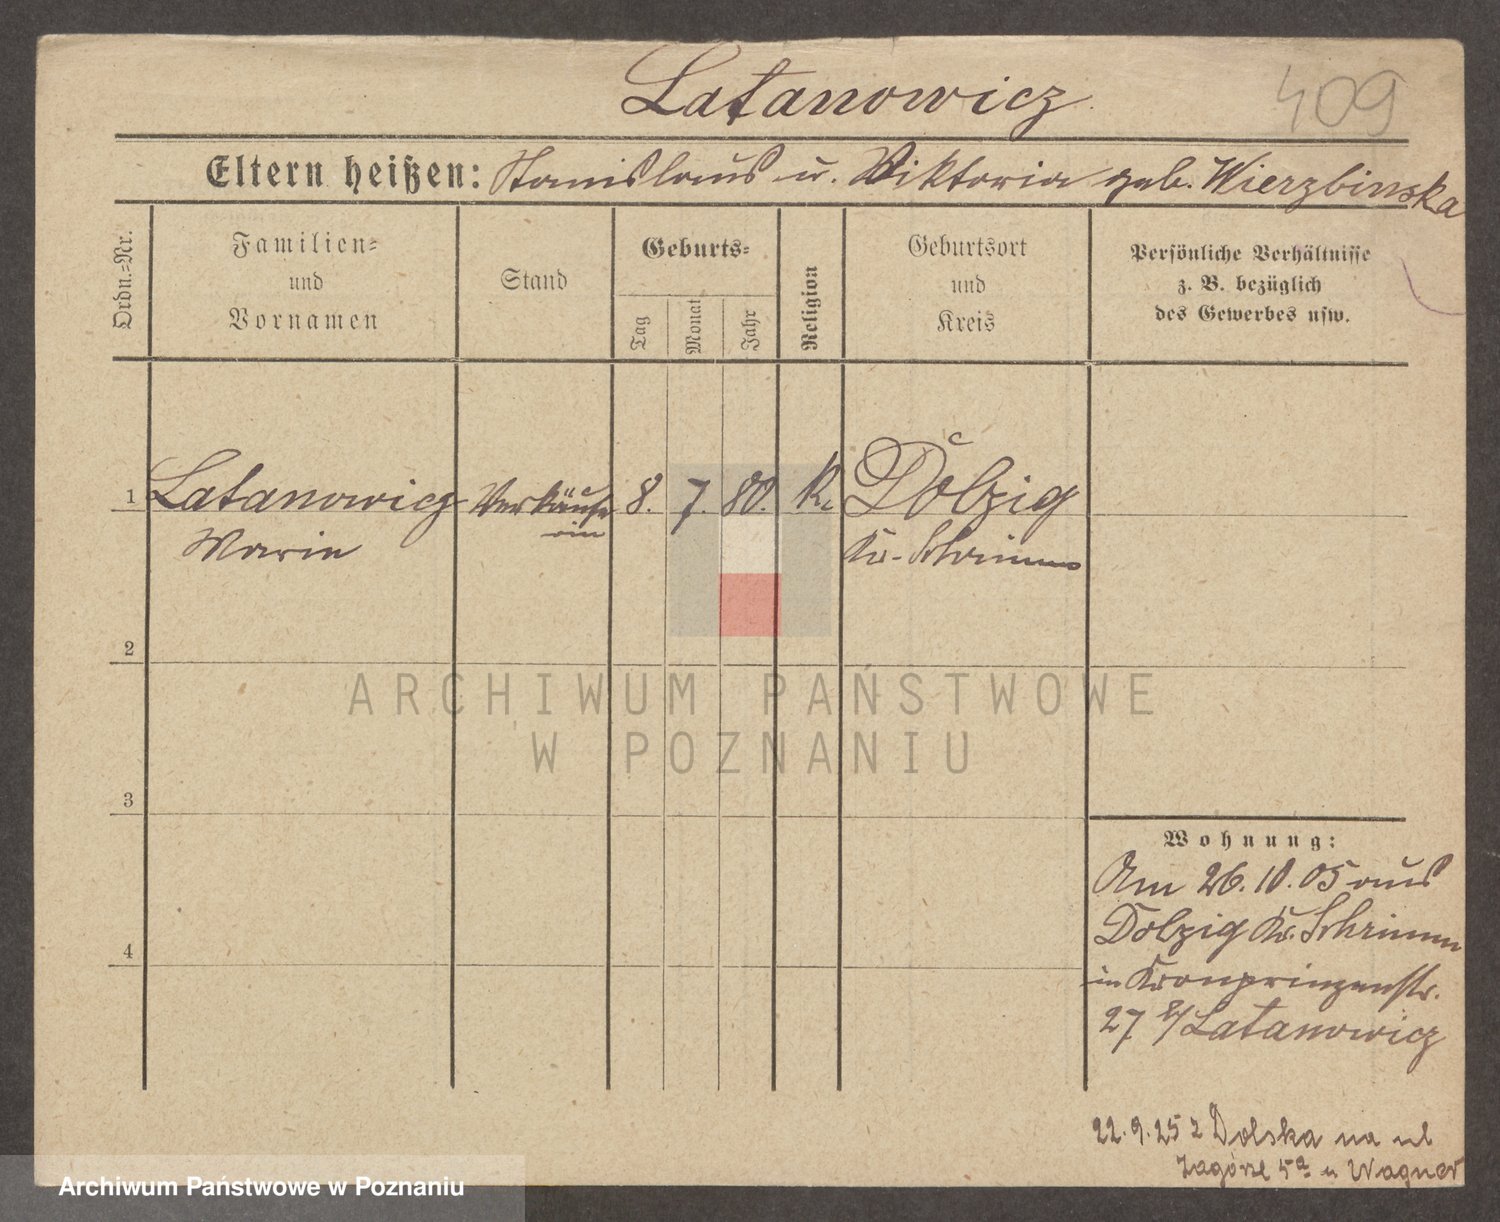 Latanowicz
409
Eltern heißen: Stanislaus u. Viktoria geb. Wierzbinska
Ordn.-Nr.
Familien-
und
Vornamen
Stand
Geburts-
Tag
Monat
Jahr
Religion
Geburtsort
und
Kreis
Persönliche Verhältnisse
z. B. bezüglich
des Gewerbes usw.
1 Latanowicz Verkäufe 8. 7. 80. K. Dolzig
Marie rin Kr. Schrimm
2
ARCHIWUM PAŃSTWOWE
W POZNANIU
3
Wohnung:
Am 26.10.05 aus
Dolzig Kr. Schrimm
in Kronprinzenstr.
27 b/Latanowicz
4
22.9.25 z Dolska na ul
Zagórze 5a u Wagner
Archiwum Państwowe w Poznaniu